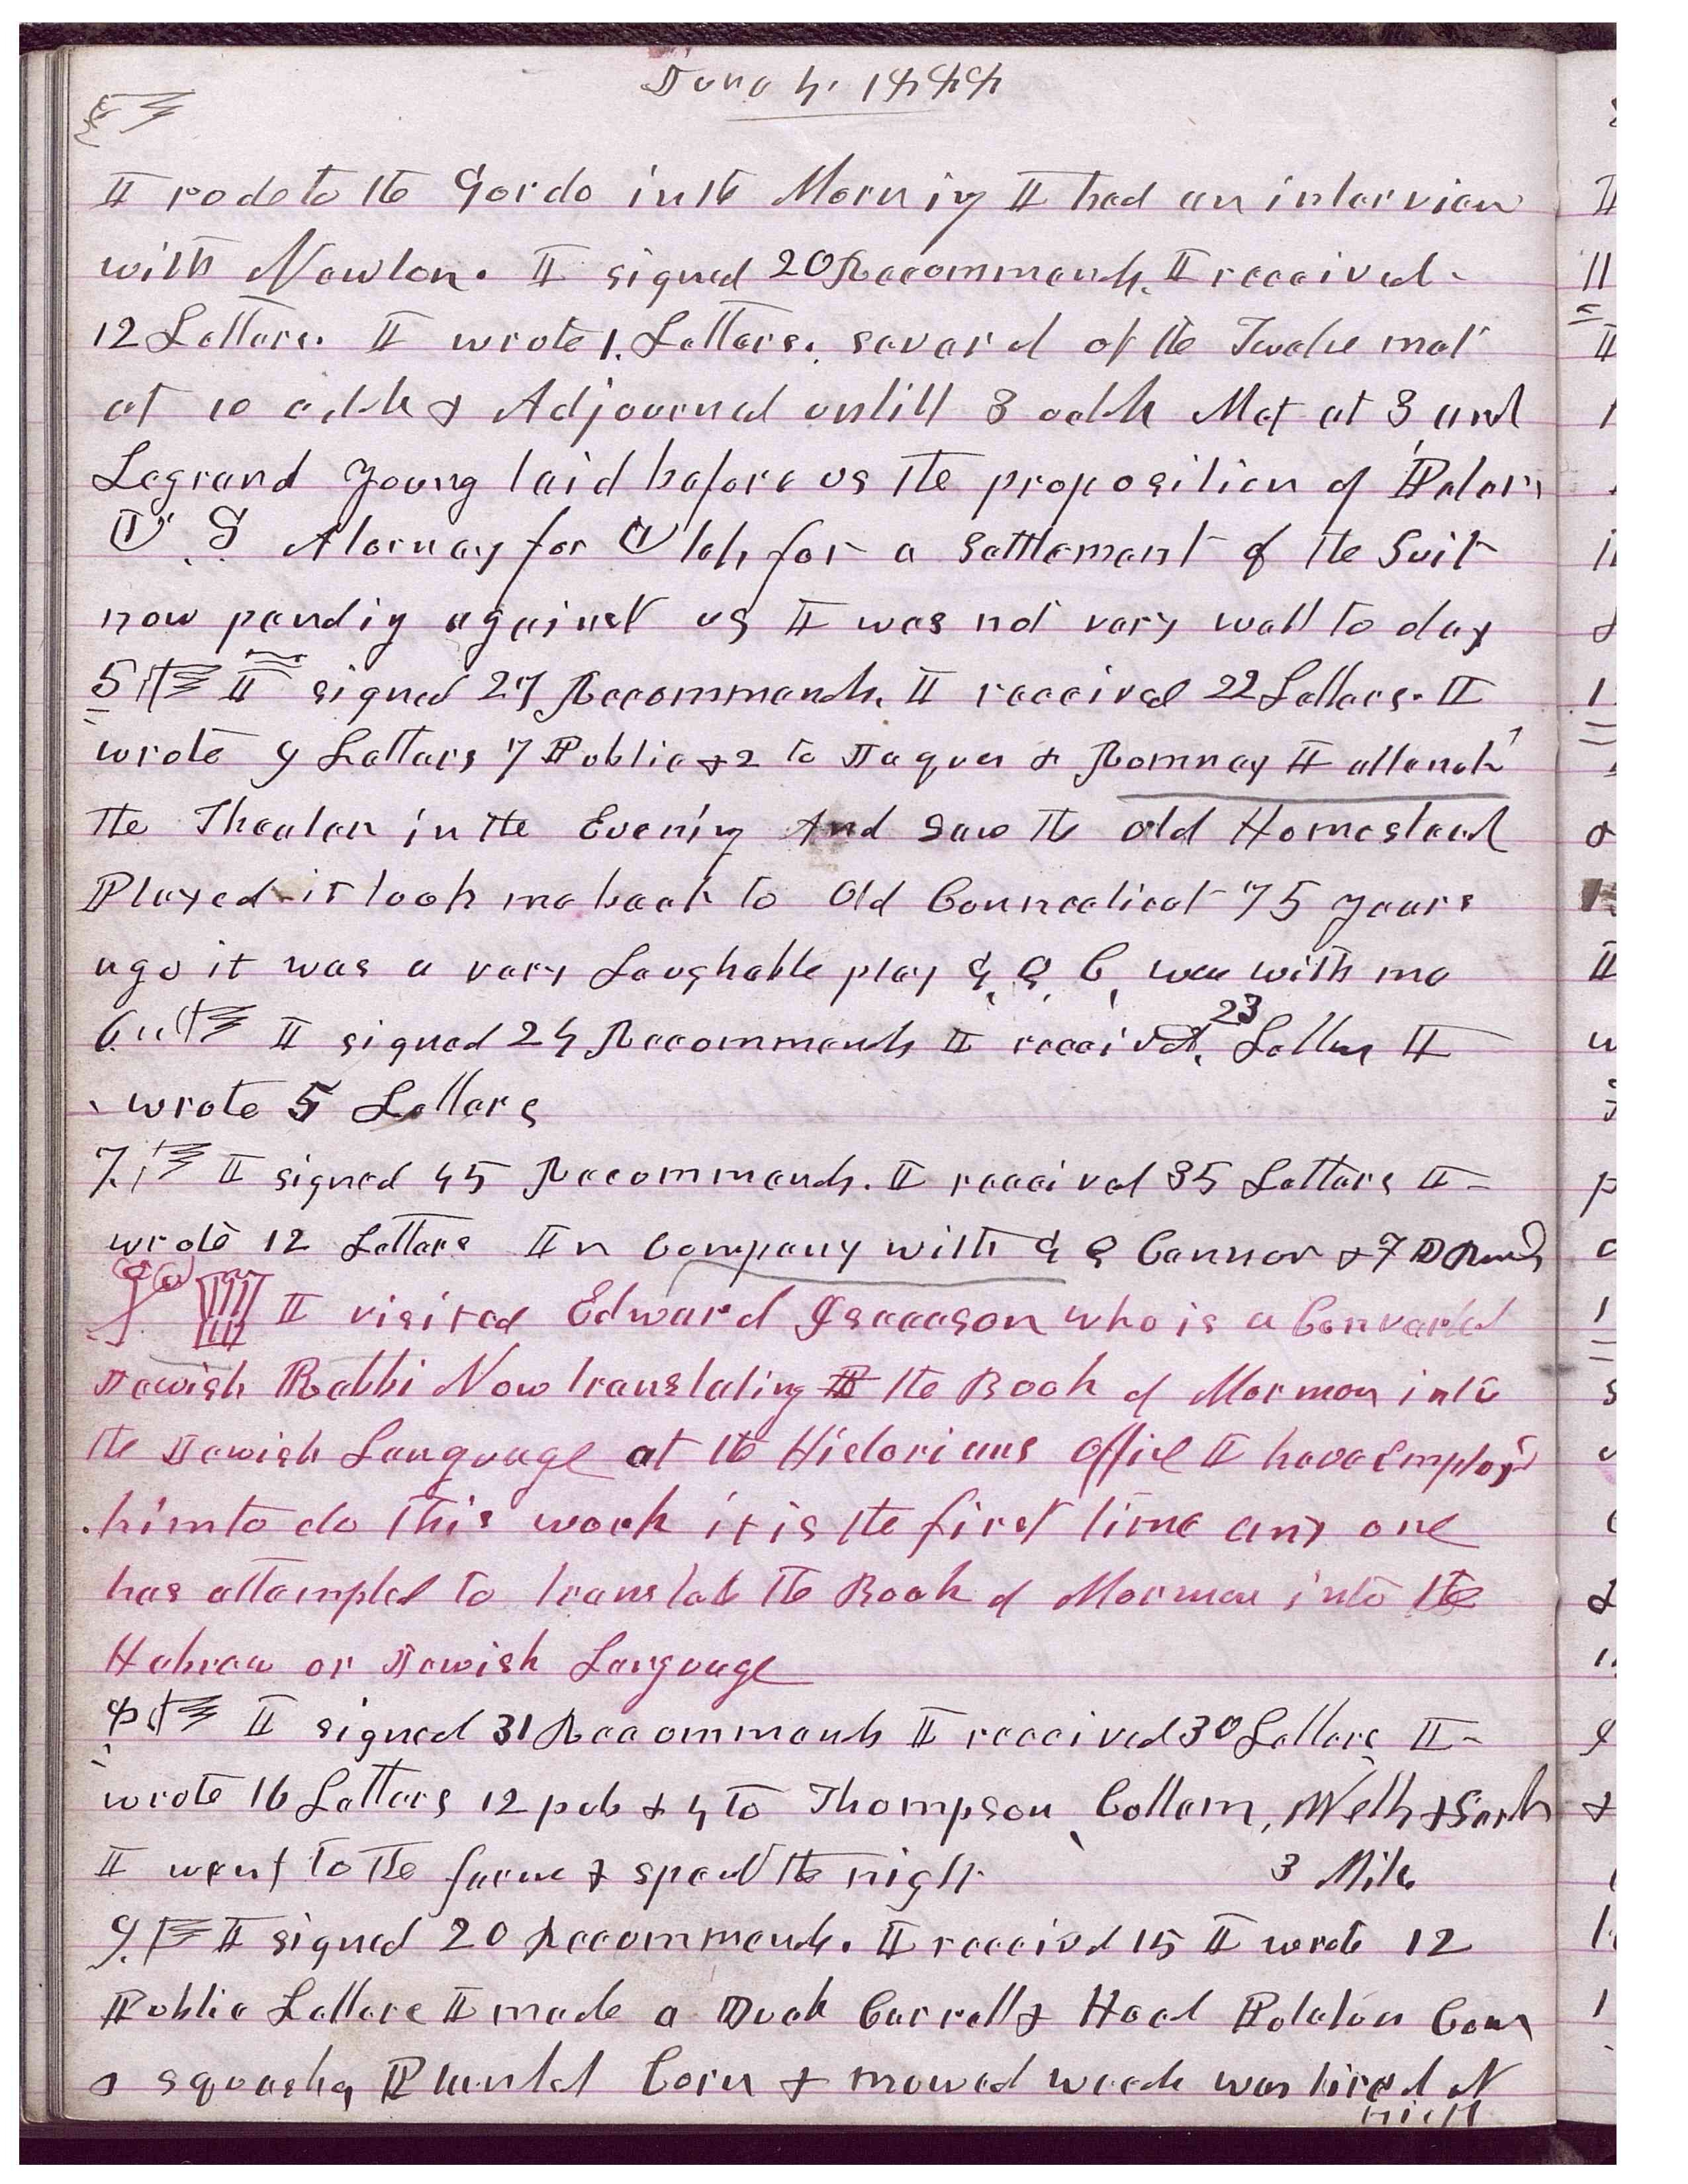 June 4. 1888
I rode to the Gardo in the Morning I had an interview
with Newton. I signed 20 Recommends. I received
12 Letters. I wrote 1. Letters. several of the Twelve met
at 10 oclk & Adjourned untill 3 oclk Met at 3 and
Legrand Young laid before us the proposition of Peters
U. S Atorney for Utah for a Settlement of the Suit
now pending against us I was not very well to day
5th I signed 27 Recommends. I received 22 Letters. I
wrote 9 Letters 7 Public & 2 to Jaques & Romney I attend
the Theater in the Evening And saw the old Homestead
Played it took me back to Old Connecticut 75 years
ago it was a very Laughable play G, Q, C, was with me
6th I signed 24 Recommends I received 23 Letters I
wrote 5 Letters
7th I signed 45 Recommends. I received 35 Letters I
wrote 12 Letters In Company with G Q Cannon & F D Rich
I visited Edward Isaacson who is a Converted
Jewish Rabbi Now translating the Book of Mormon into
the Jewish Language at the Historians Office I have employed
him to do this work it is the first time any one
has attempted to translate the Book of Mormon into the
Hebrew or Jewish Language
8th I signed 31 Recommends I received 30 Letters I
wrote 16 Letters 12 pub & 4 to Thompson, Collam, Wells & Sarah
I went to the farm & spent the night 3 Mile
9th I signed 20 Recommends. I received 15 I wrote 12
Public Letters I made a Duck Carrell & Hoed Potatoes Corn
& squashes Planted Corn & mowed weeds was tired At
night